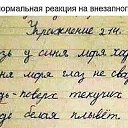 нормальная реакция на внезапног
Упражнение 214.
у синя моря ход
моря глаз не свод
поверх текучих
белая плывёт